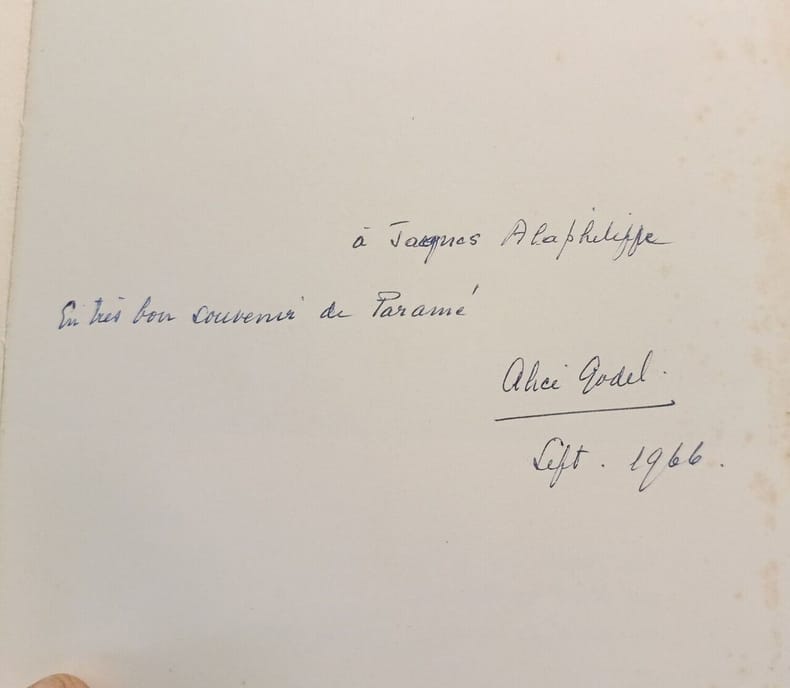 à Jacques Alaphilippe
En très bon souvenir de Paramé
Alice Godel.
Sept. 1966.